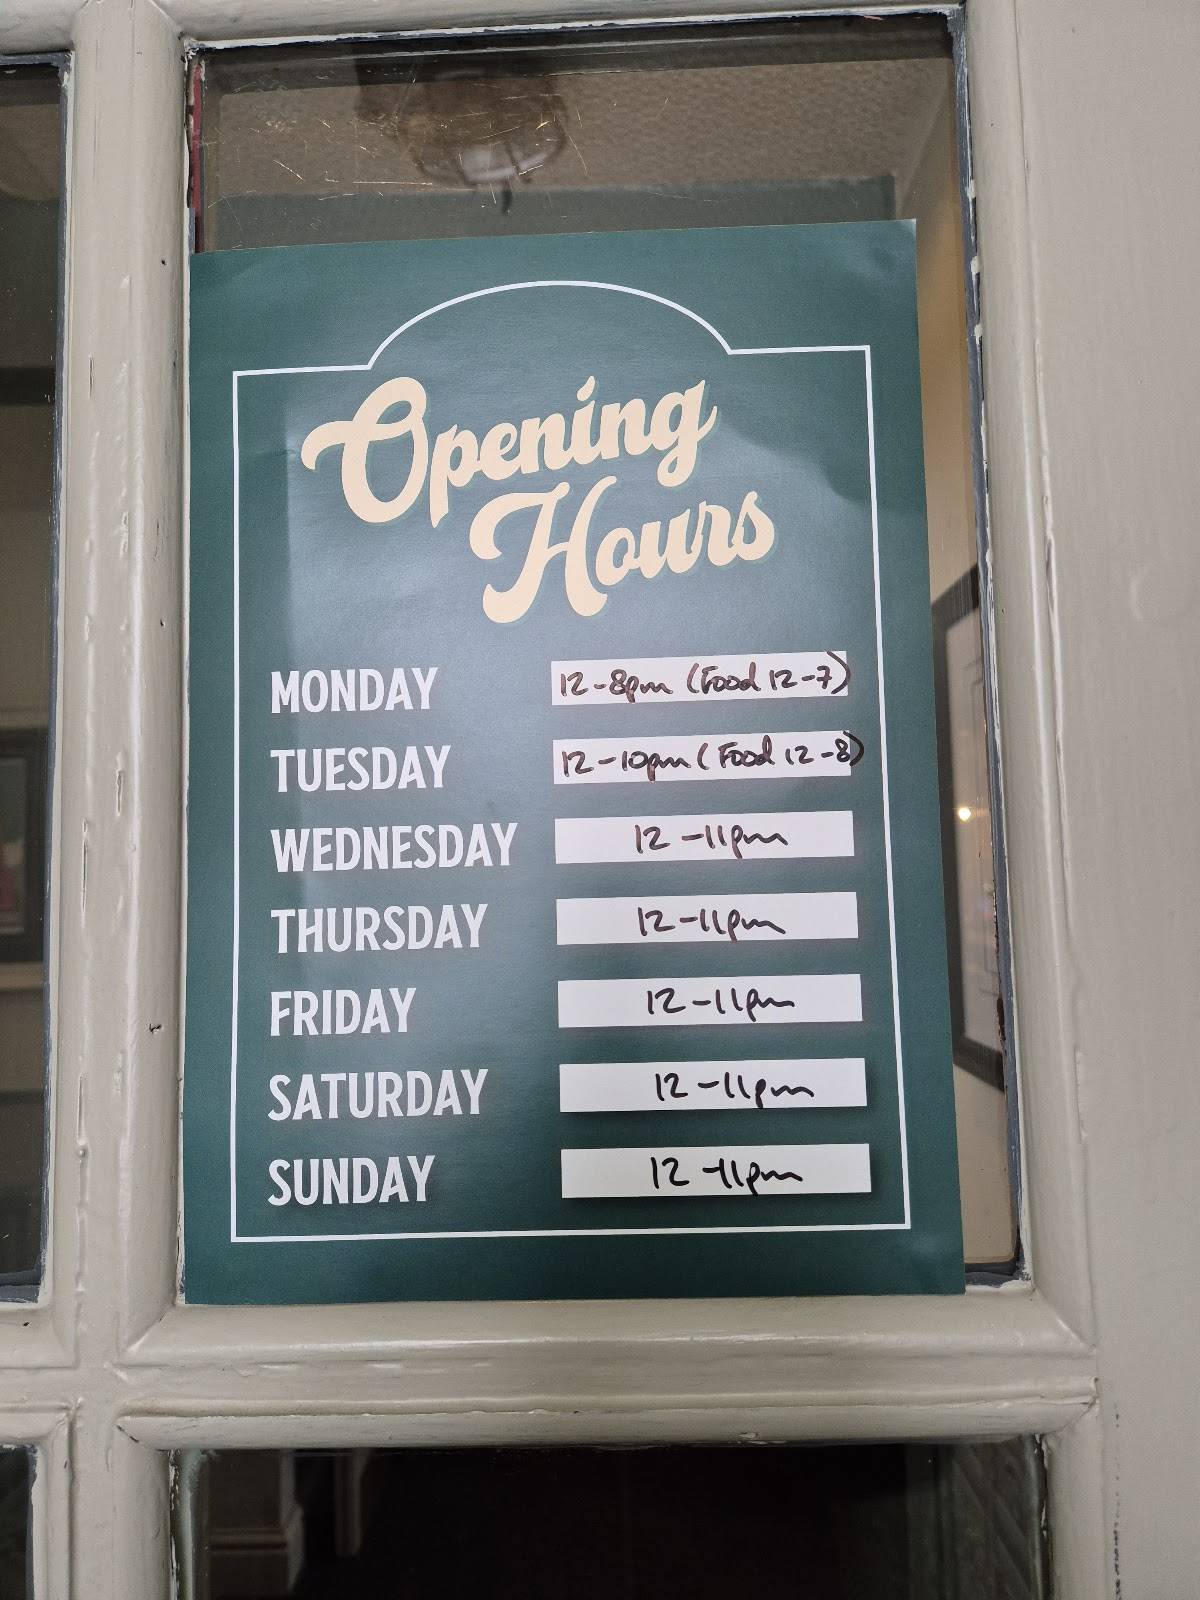 Opening
Hours
MONDAY 12-8pm (Food 12-7)
TUESDAY 12-10pm (Food 12-8)
WEDNESDAY 12-11pm
THURSDAY 12-11pm
FRIDAY 12-11pm
SATURDAY 12-11pm
SUNDAY 12-11pm